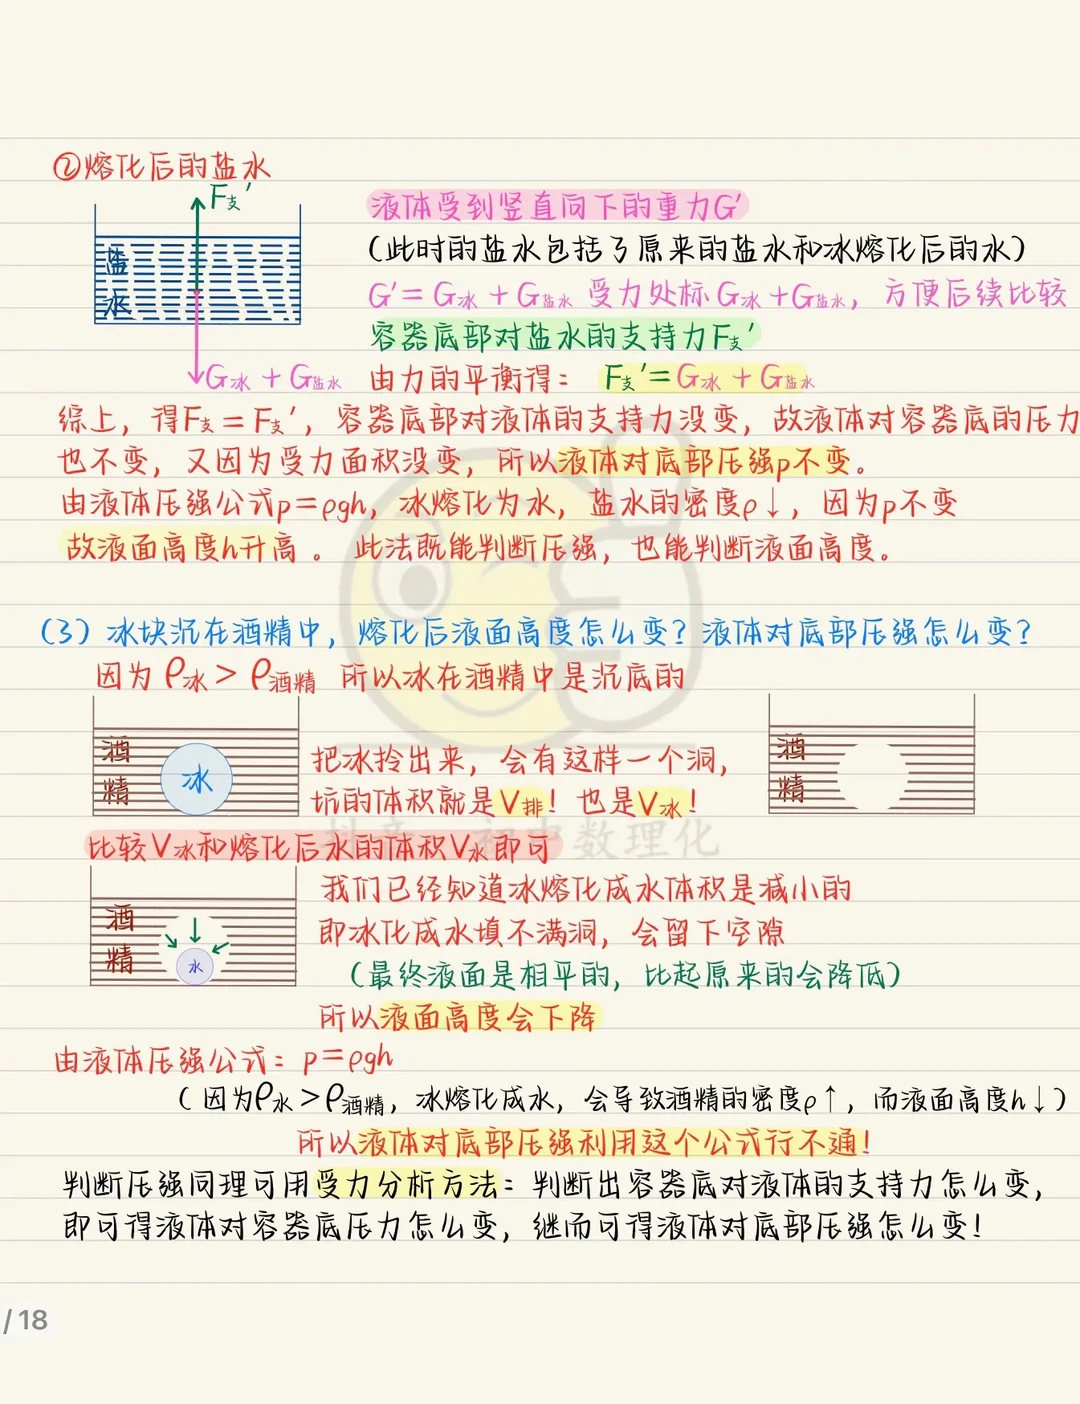 ②熔化后的盐水
F支′
盐水
G冰 + G盐水
液体受到竖直向下的重力G′
(此时的盐水包括了原来的盐水和冰熔化后的水)
G′= G冰 + G盐水 受力处标G冰+G盐水, 方便后续比较
容器底部对盐水的支持力F支′
由力的平衡得: F支′= G冰 + G盐水
综上, 得F支 = F支′, 容器底部对液体的支持力没变, 故液体对容器底的压力
也不变, 又因为受力面积没变, 所以液体对底部压强p不变。
由液体压强公式p=ρgh, 冰熔化为水, 盐水的密度ρ↓, 因为p不变
故液面高度h升高。此法既能判断压强, 也能判断液面高度。
(3) 冰块沉在酒精中, 熔化后液面高度怎么变? 液体对底部压强怎么变?
因为 ρ冰 > ρ酒精 所以冰在酒精中是沉底的
酒精
冰
把冰拎出来, 会有这样一个洞,
坑的体积就是V排! 也是V冰!
酒精
初中数理化
比较V冰和熔化后水的体积V水即可
酒精
水
我们已经知道冰熔化成水体积是减小的
即冰化成水填不满洞, 会留下空隙
(最终液面是相平的, 比起原来的会降低)
所以液面高度会下降
由液体压强公式: p=ρgh
(因为ρ水>ρ酒精, 冰熔化成水, 会导致酒精的密度ρ↑, 而液面高度h↓)
所以液体对底部压强利用这个公式行不通!
判断压强同理可用受力分析方法: 判断出容器底对液体的支持力怎么变,
即可得液体对容器底压力怎么变, 继而可得液体对底部压强怎么变!
/ 18